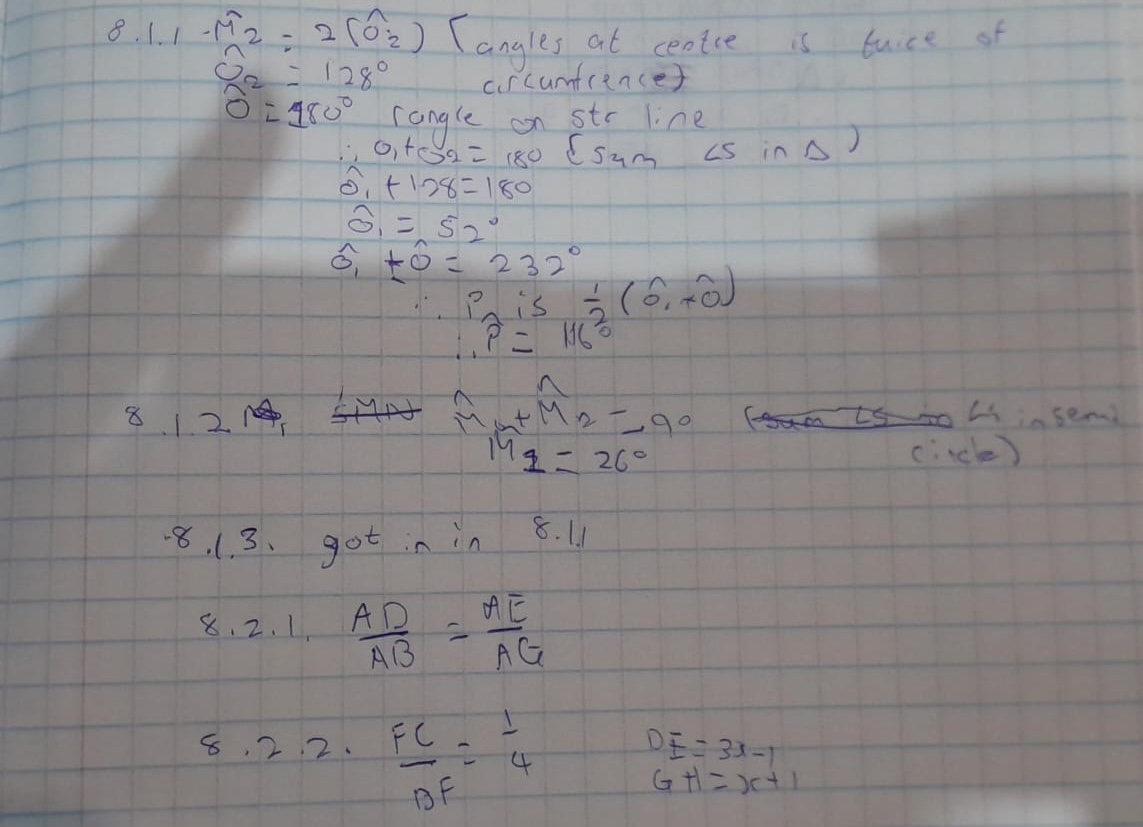 8.1.1 -M̂2 = 2(Ô2) (angles at centre is twice of
Ô2 = 128° circumfrence)
Ô = 180° (angle on str line
∴ O1+O2 = 180 (Sum ∠S in Δ)
Ô1 + 128 = 180
Ô1 = 52°
Ô1 + Ô = 232°
∴ P̂ is 1/2 (Ô1+Ô)
∴ P̂ = 116°
8.1.2 M̂1 + M̂2 = 90 (∠s in semi
M1 = 26° circle)
8.1.3. got in in 8.1.1
8.2.1. AD/AB = AE/AG
8.2.2. FC/BF = 1/4 DE = 3x-1
GH = x+1